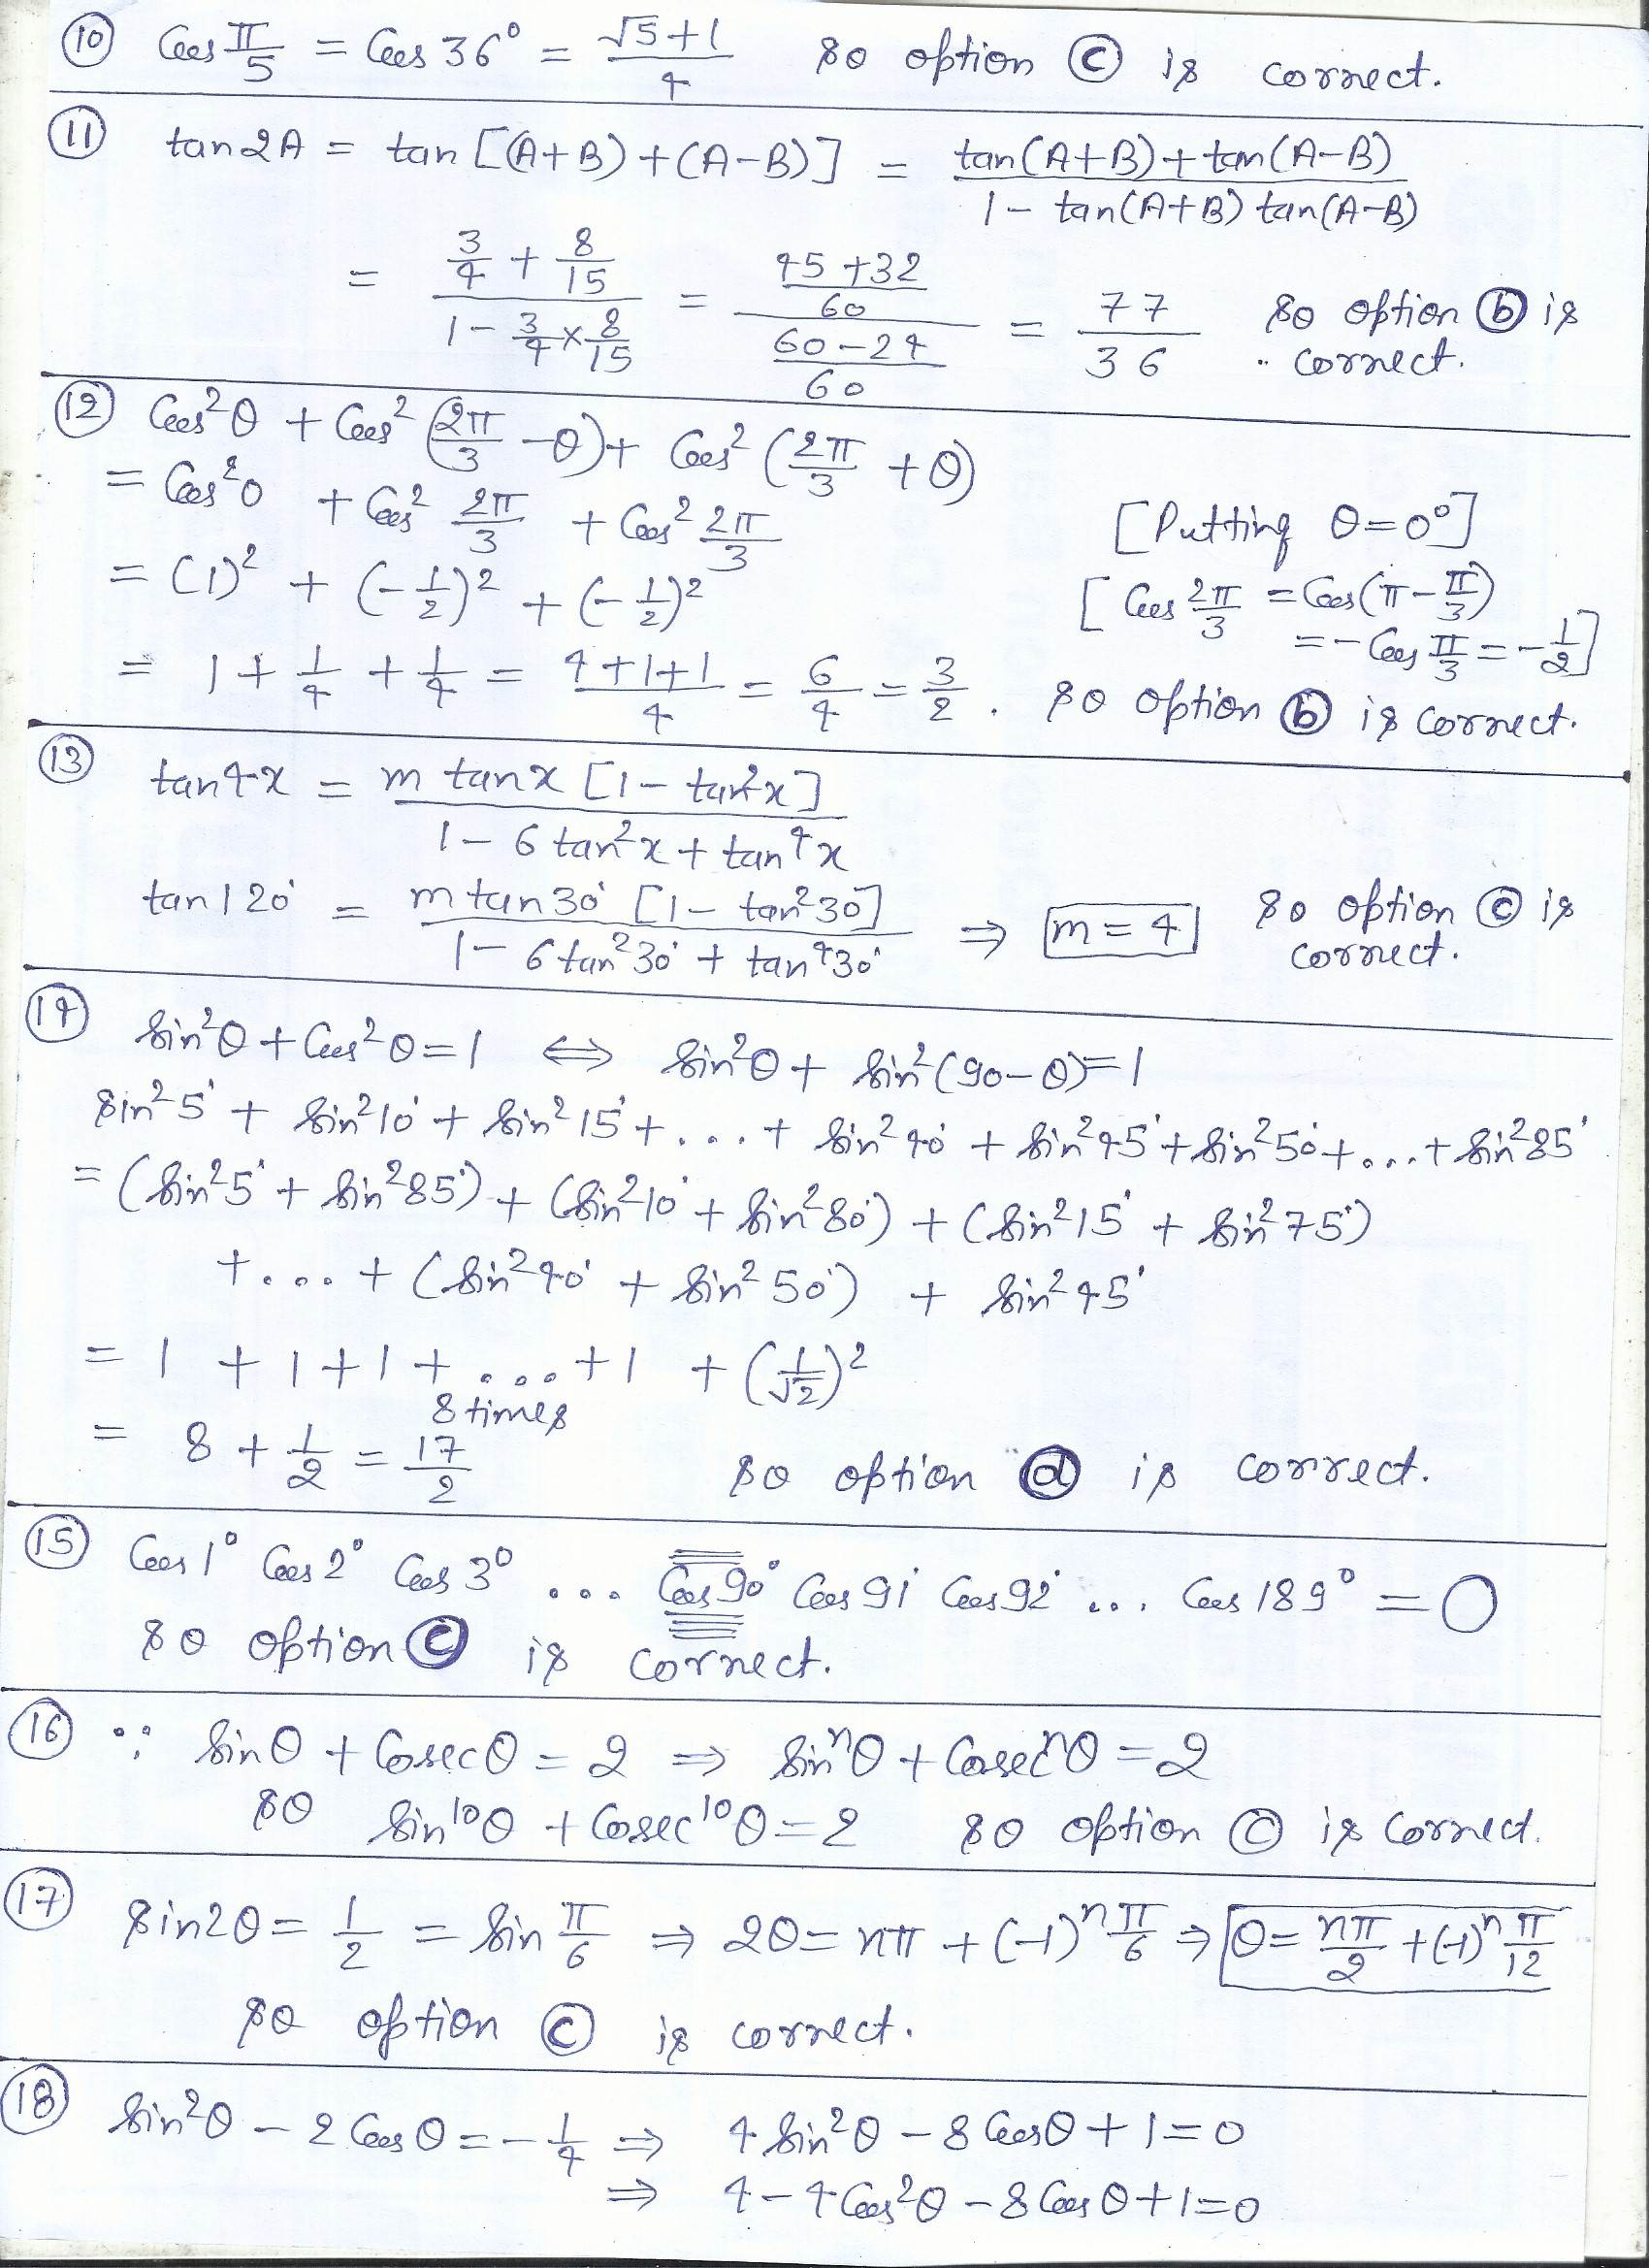 (10) Cos π/5 = Cos 36° = (√5+1)/4 so option (c) is correct.
(11) tan2A = tan[(A+B)+(A-B)] = (tan(A+B)+tan(A-B))/(1-tan(A+B) tan(A-B))
= (3/4 + 8/15)/(1 - 3/4 × 8/15) = ((45+32)/60)/((60-24)/60) = 77/36 so option (b) is
correct.
(12) Cos²θ + Cos²(2π/3 - θ) + Cos²(2π/3 + θ)
= Cos²0 + Cos² 2π/3 + Cos² 2π/3 [Putting θ=0°]
= (1)² + (-1/2)² + (-1/2)² [Cos 2π/3 = Cos(π - π/3)
= -Cos π/3 = -1/2]
= 1 + 1/4 + 1/4 = (4+1+1)/4 = 6/4 = 3/2. so option (b) is correct.
(13) tan4x = (m tanx [1 - tan²x])/(1 - 6tan²x + tan⁴x)
tan120° = (m tan30° [1 - tan²30°])/(1 - 6tan²30° + tan⁴30°) ⇒ m = 4 so option (c) is
correct.
(14) sin²θ + Cos²θ = 1 ⇔ sin²θ + sin²(90-θ) = 1
sin²5° + sin²10° + sin²15° + .... + sin²40° + sin²45° + sin²50° + .... + sin²85°
= (sin²5° + sin²85°) + (sin²10° + sin²80°) + (sin²15° + sin²75°)
+ .... + (sin²40° + sin²50°) + sin²45°
= 1 + 1 + 1 + .... + 1 + (1/√2)²
8 times
= 8 + 1/2 = 17/2 so option (d) is correct.
(15) Cos1° Cos2° Cos3° ... Cos90° Cos91° Cos92° ... Cos189° = 0
so option (c) is correct.
(16) ∵ sinθ + Cosecθ = 2 ⇒ sinⁿθ + Cosecⁿθ = 2
so sin¹⁰θ + Cosec¹⁰θ = 2 so option (c) is correct.
(17) sin2θ = 1/2 = sin π/6 ⇒ 2θ = nπ + (-1)ⁿ π/6 ⇒ θ = nπ/2 + (-1)ⁿ π/12
so option (c) is correct.
(18) sin²θ - 2Cosθ = -1/4 ⇒ 4sin²θ - 8Cosθ + 1 = 0
⇒ 4 - 4Cos²θ - 8Cosθ + 1 = 0